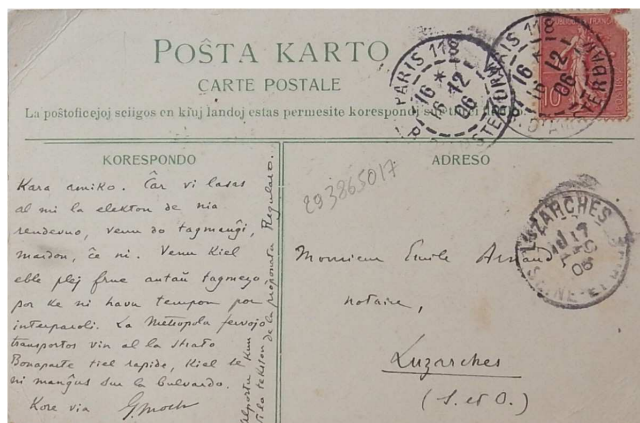 POŜTA KARTO
CARTE POSTALE
La poŝtoficejoj sciigos en kiuj landoj estas permesite korespondi sur tiu
PARIS 118
16 * 12
06
PARIS 118
16 * 12
06
10
KORESPONDO
ADRESO
293865017
Kara amiko. Ĉar vi lasas
al mi la elekton de nia
rendevuo, venu do tagmanĝi,
mardon, ĉe ni. Venu kiel
eble plej frue antaŭ tagmezo,
por ke ni havu tempon por
interparoli. La Metropola fervojo
transportos vin al la strato
Bonaparte tiel rapide, kiel se
ni manĝus sur la bulvardo.
Kore via G. Moch
Alportu kun
vi la tekston de la proponata Regularo.
Monsieur Emile
notaire,
Luzarches
(S. et O.)
LUZARCHES
SEINE-ET-